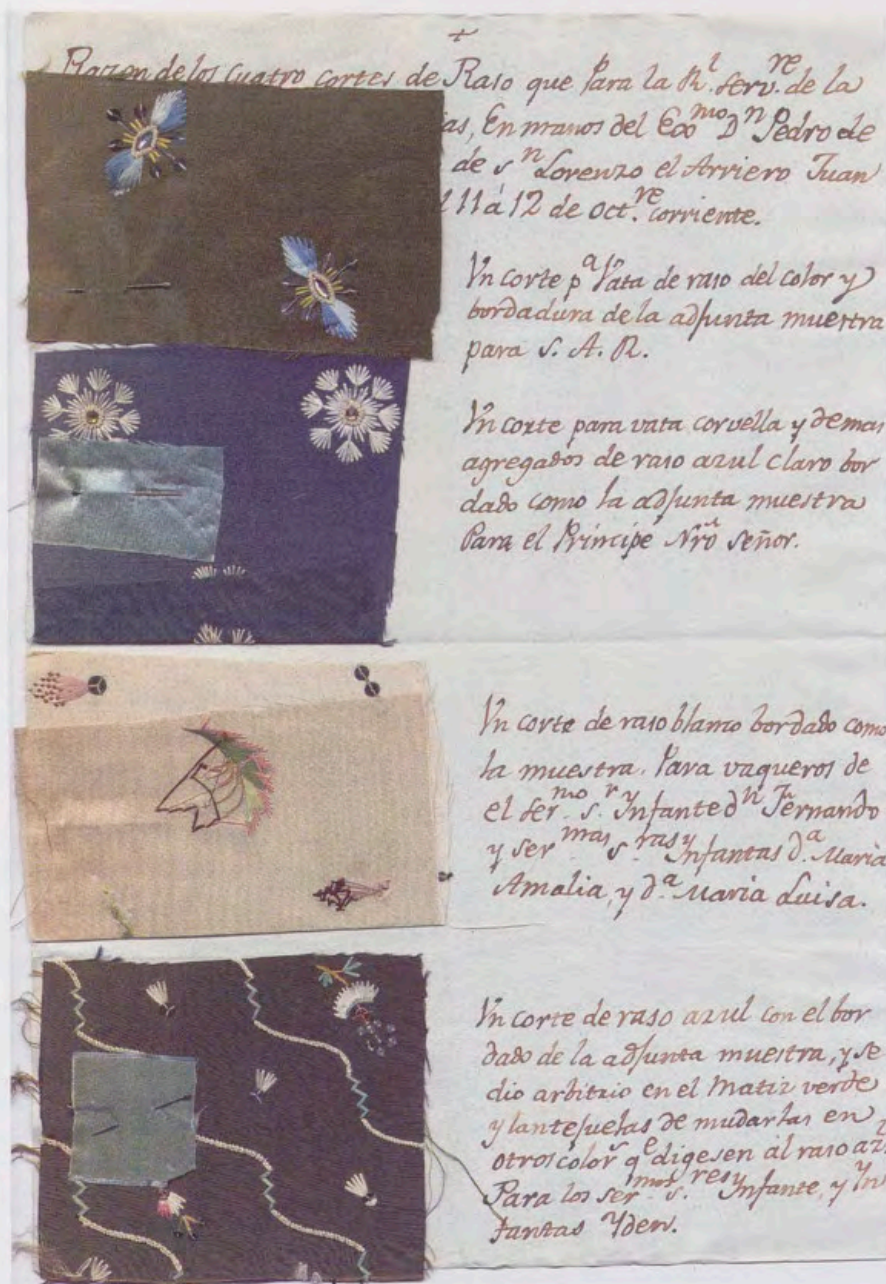 +
Razon de los Cuatro cortes de Raso que Para la Rl. serv.re de la
as, En manos del Exmo Dn Pedro de
de sn Lorenzo el Arriero Juan
l 11 á 12 de octre. corriente.
Vn corte pa Vata de raso del color y
bordadura de la adjunta muestra
para S. A. R.
Vn corte para vata corvella y demas
agregados de raso azul claro bor
dado como la adjunta muestra
Para el Príncipe Nrô Señor.
Vn corte de raso blanco bordado como
la muestra. Para vaqueros de
el sermo. sr. Ynfante dn Fernando
y sermas. sras Ynfantas da. Maria
Amalia, y da. Maria Luisa.
Vn corte de raso azul con el bor
dado de la adjunta muestra, y se
dio arbitrio en el Matiz verde
y lantejuelas de mudarlas en
otros colors qe digesen al raso az
Para los sermos. sres Ynfante, y Yn
fantas Yden.